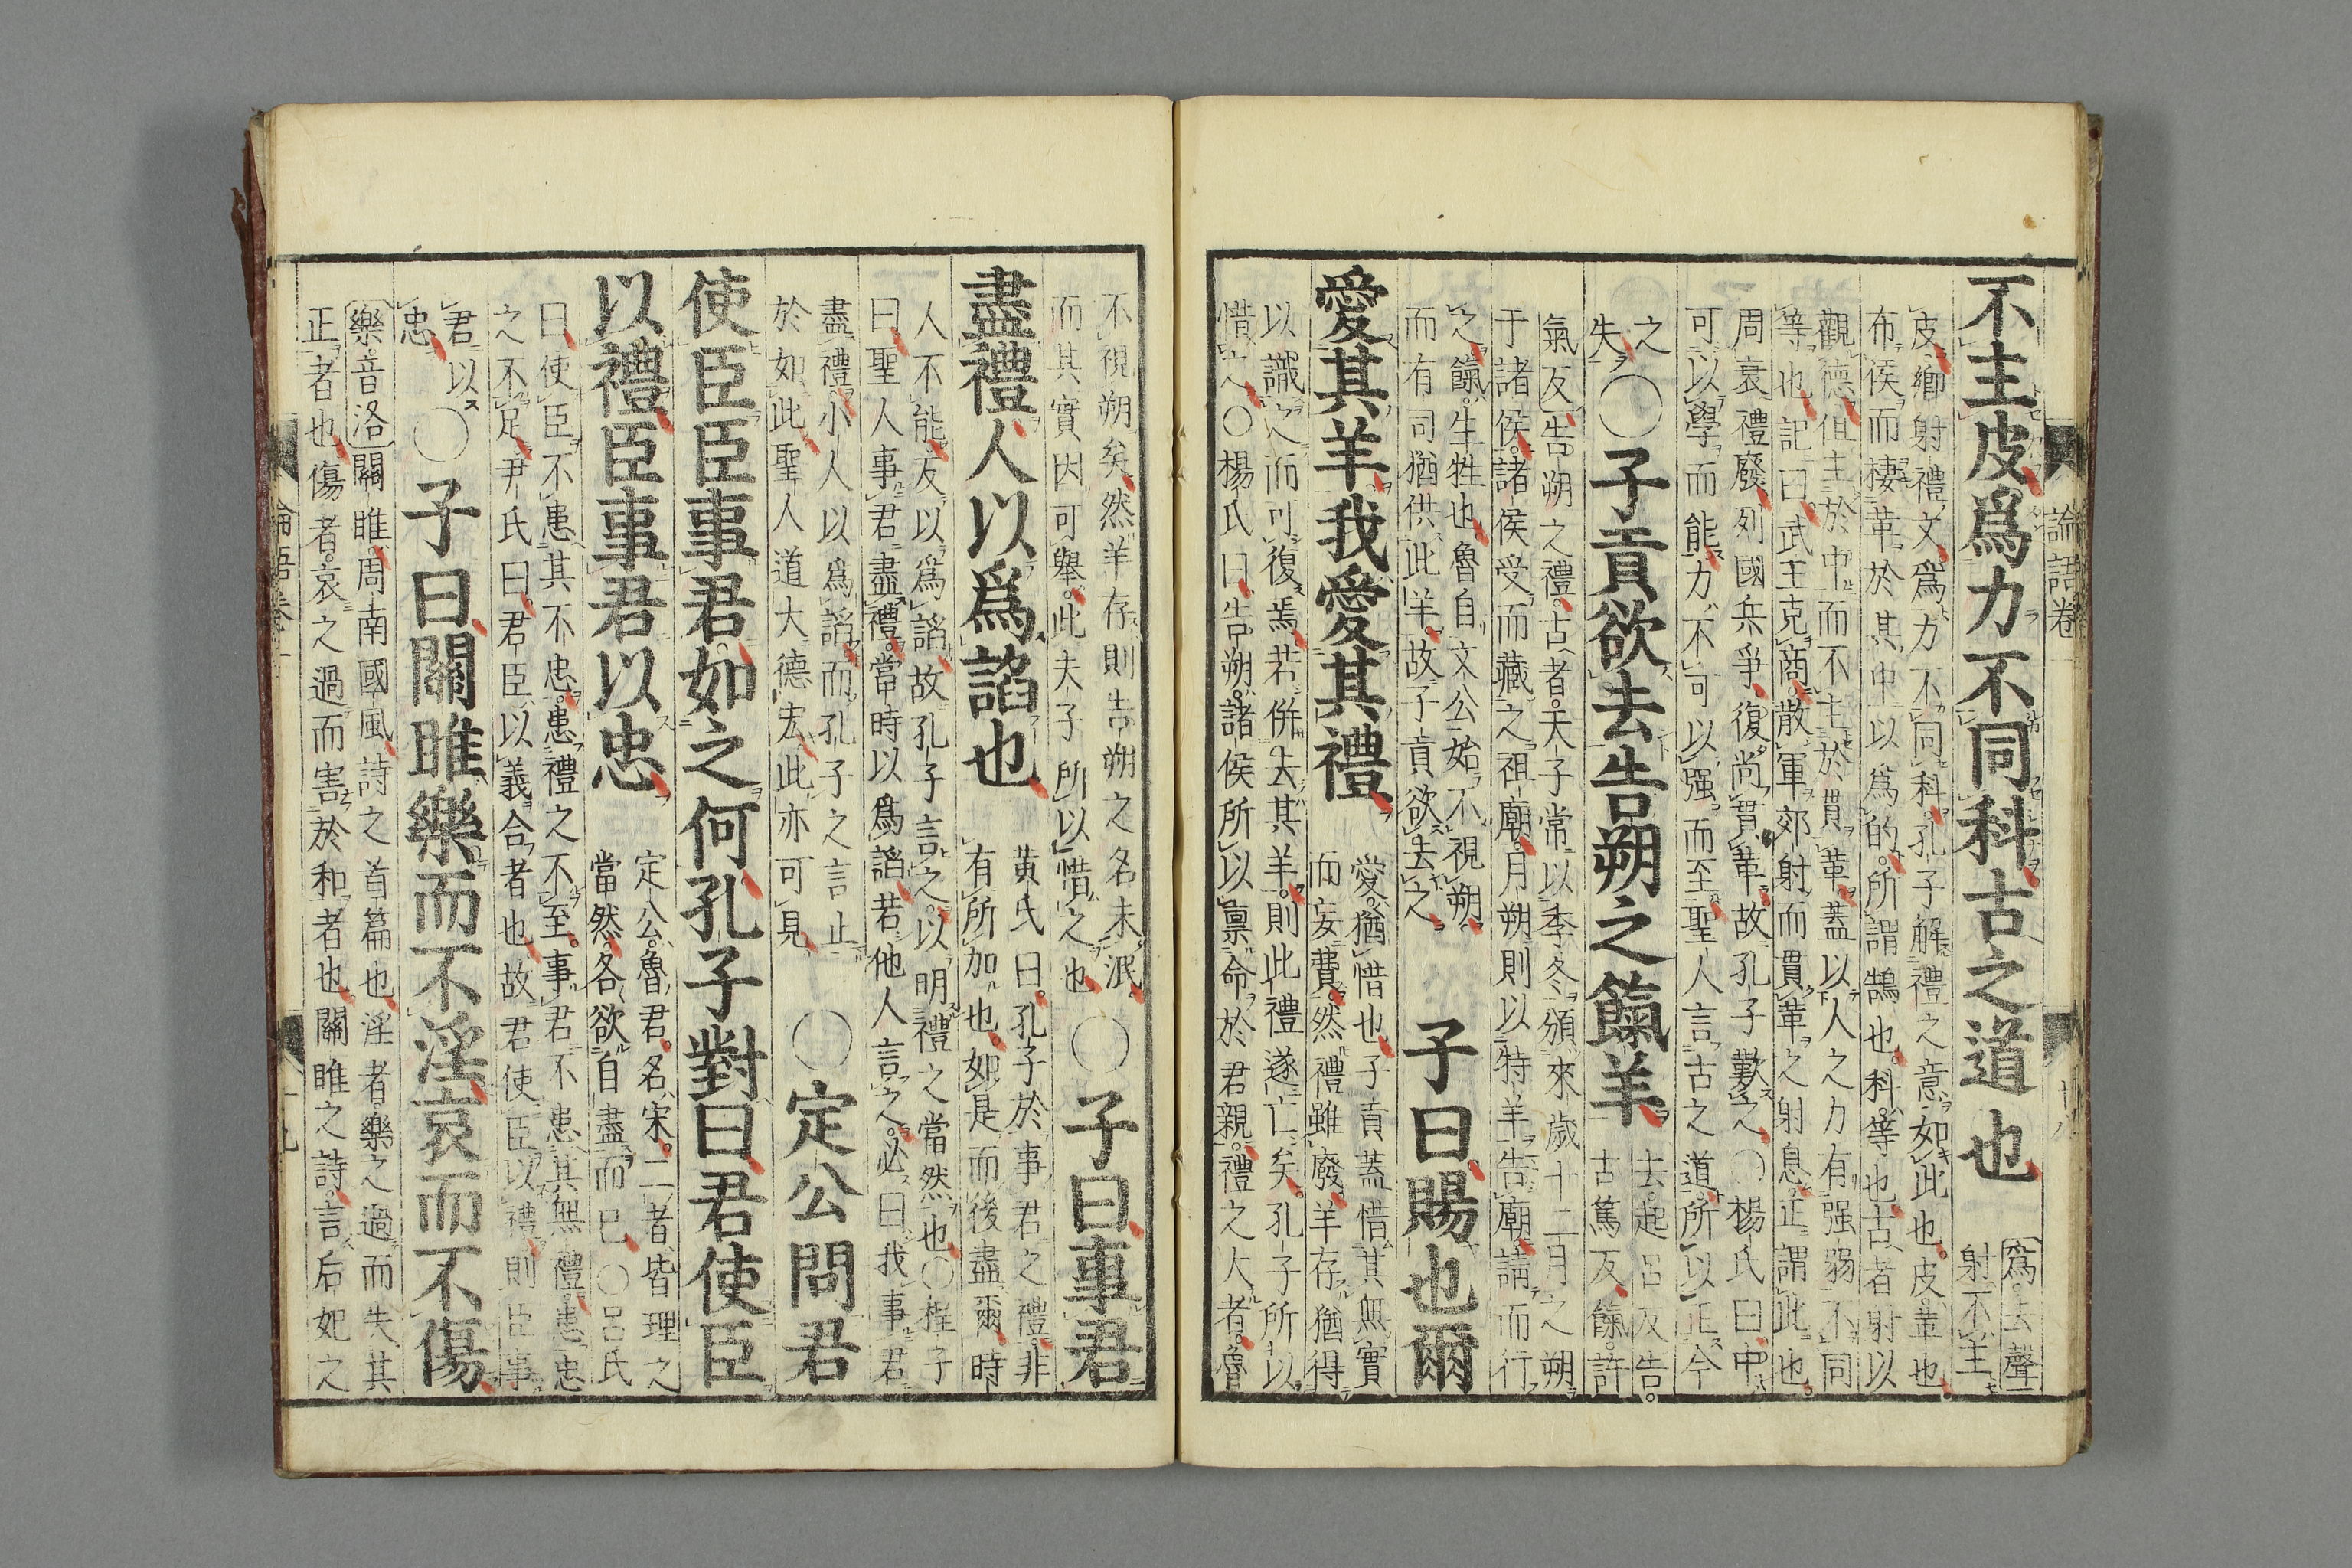 論語卷 十八
不主皮爲力不同科古之道也
爲去聲
射不主
皮鄉射禮文爲力不同科孔子解禮之意如此也皮革也
布侯而棲革於其中以爲的所謂鵠也科等也古者射以
觀德但主於中而不主於貫革蓋以人之力有强弱不同
等也記曰武王克商散軍郊射而貫革之射息正謂此也
周衰禮廢列國兵爭復尚貫革故孔子歎之○楊氏曰中
可以學而能力不可以强而至聖人言古之道所以正今
之
失
○子貢欲去告朔之餼羊
去起呂反告
古篤反餼許
氣反告朔之禮古者天子常以季冬頒來歲十二月之朔
于諸侯諸侯受而藏之祖廟月朔則以特羊告廟請而行
之餼生牲也魯自文公始不視朔
而有司猶供此羊故子貢欲去之
子曰賜也爾
愛其羊我愛其禮
愛猶惜也子貢蓋惜其無實
而妄費然禮雖廢羊存猶得
以識之而可復焉若併去其羊則此禮遂亡矣孔子所以
惜之○楊氏曰告朔諸侯所以禀命於君親禮之大者魯
不視朔矣然羊存則告朔之名未泯
而其實因可舉此夫子所以惜之也
○子曰事君
盡禮人以爲諂也
黃氏曰孔子於事君之禮非
有所加也如是而後盡爾時
人不能反以爲諂故孔子言之以明禮之當然也○程子
曰聖人事君盡禮當時以爲諂若他人言之必曰我事君
盡禮小人以爲諂而孔子之言止
於如此聖人道大德宏此亦可見
○定公問君
使臣臣事君如之何孔子對曰君使臣
以禮臣事君以忠
定公魯君名宋二者皆理之
當然各欲自盡而已○呂氏
曰使臣不患其不忠患禮之不至事君不患其無禮患忠
之不足尹氏曰君臣以義合者也故君使臣以禮則臣事
君以
忠
○子曰關雎樂而不淫哀而不傷
樂音洛關雎周南國風詩之首篇也淫者樂之過而失其
正者也傷者哀之過而害於和者也關雎之詩言后妃之
論語卷 十九